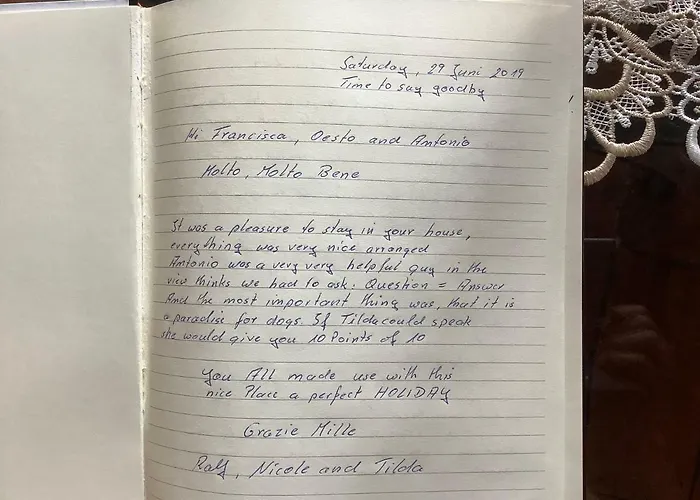 Saturday, 29 Juni 2019
Time to say goodby
Hi Francisca, Oesto and Antonio
Molto, Molto Bene
It was a pleasure to stay in your house,
everything was very nice arranged
Antonio was a very very helpful guy in the
view thinks we had to ask: Question = Answer
And the most important thing was, that it is
a paradise for dogs. If Tilda could speak
she would give you 10 Points of 10
You All made use with this
nice Place a perfect HOLIDAY
Grazie Mille
Ralf, Nicole and Tilda